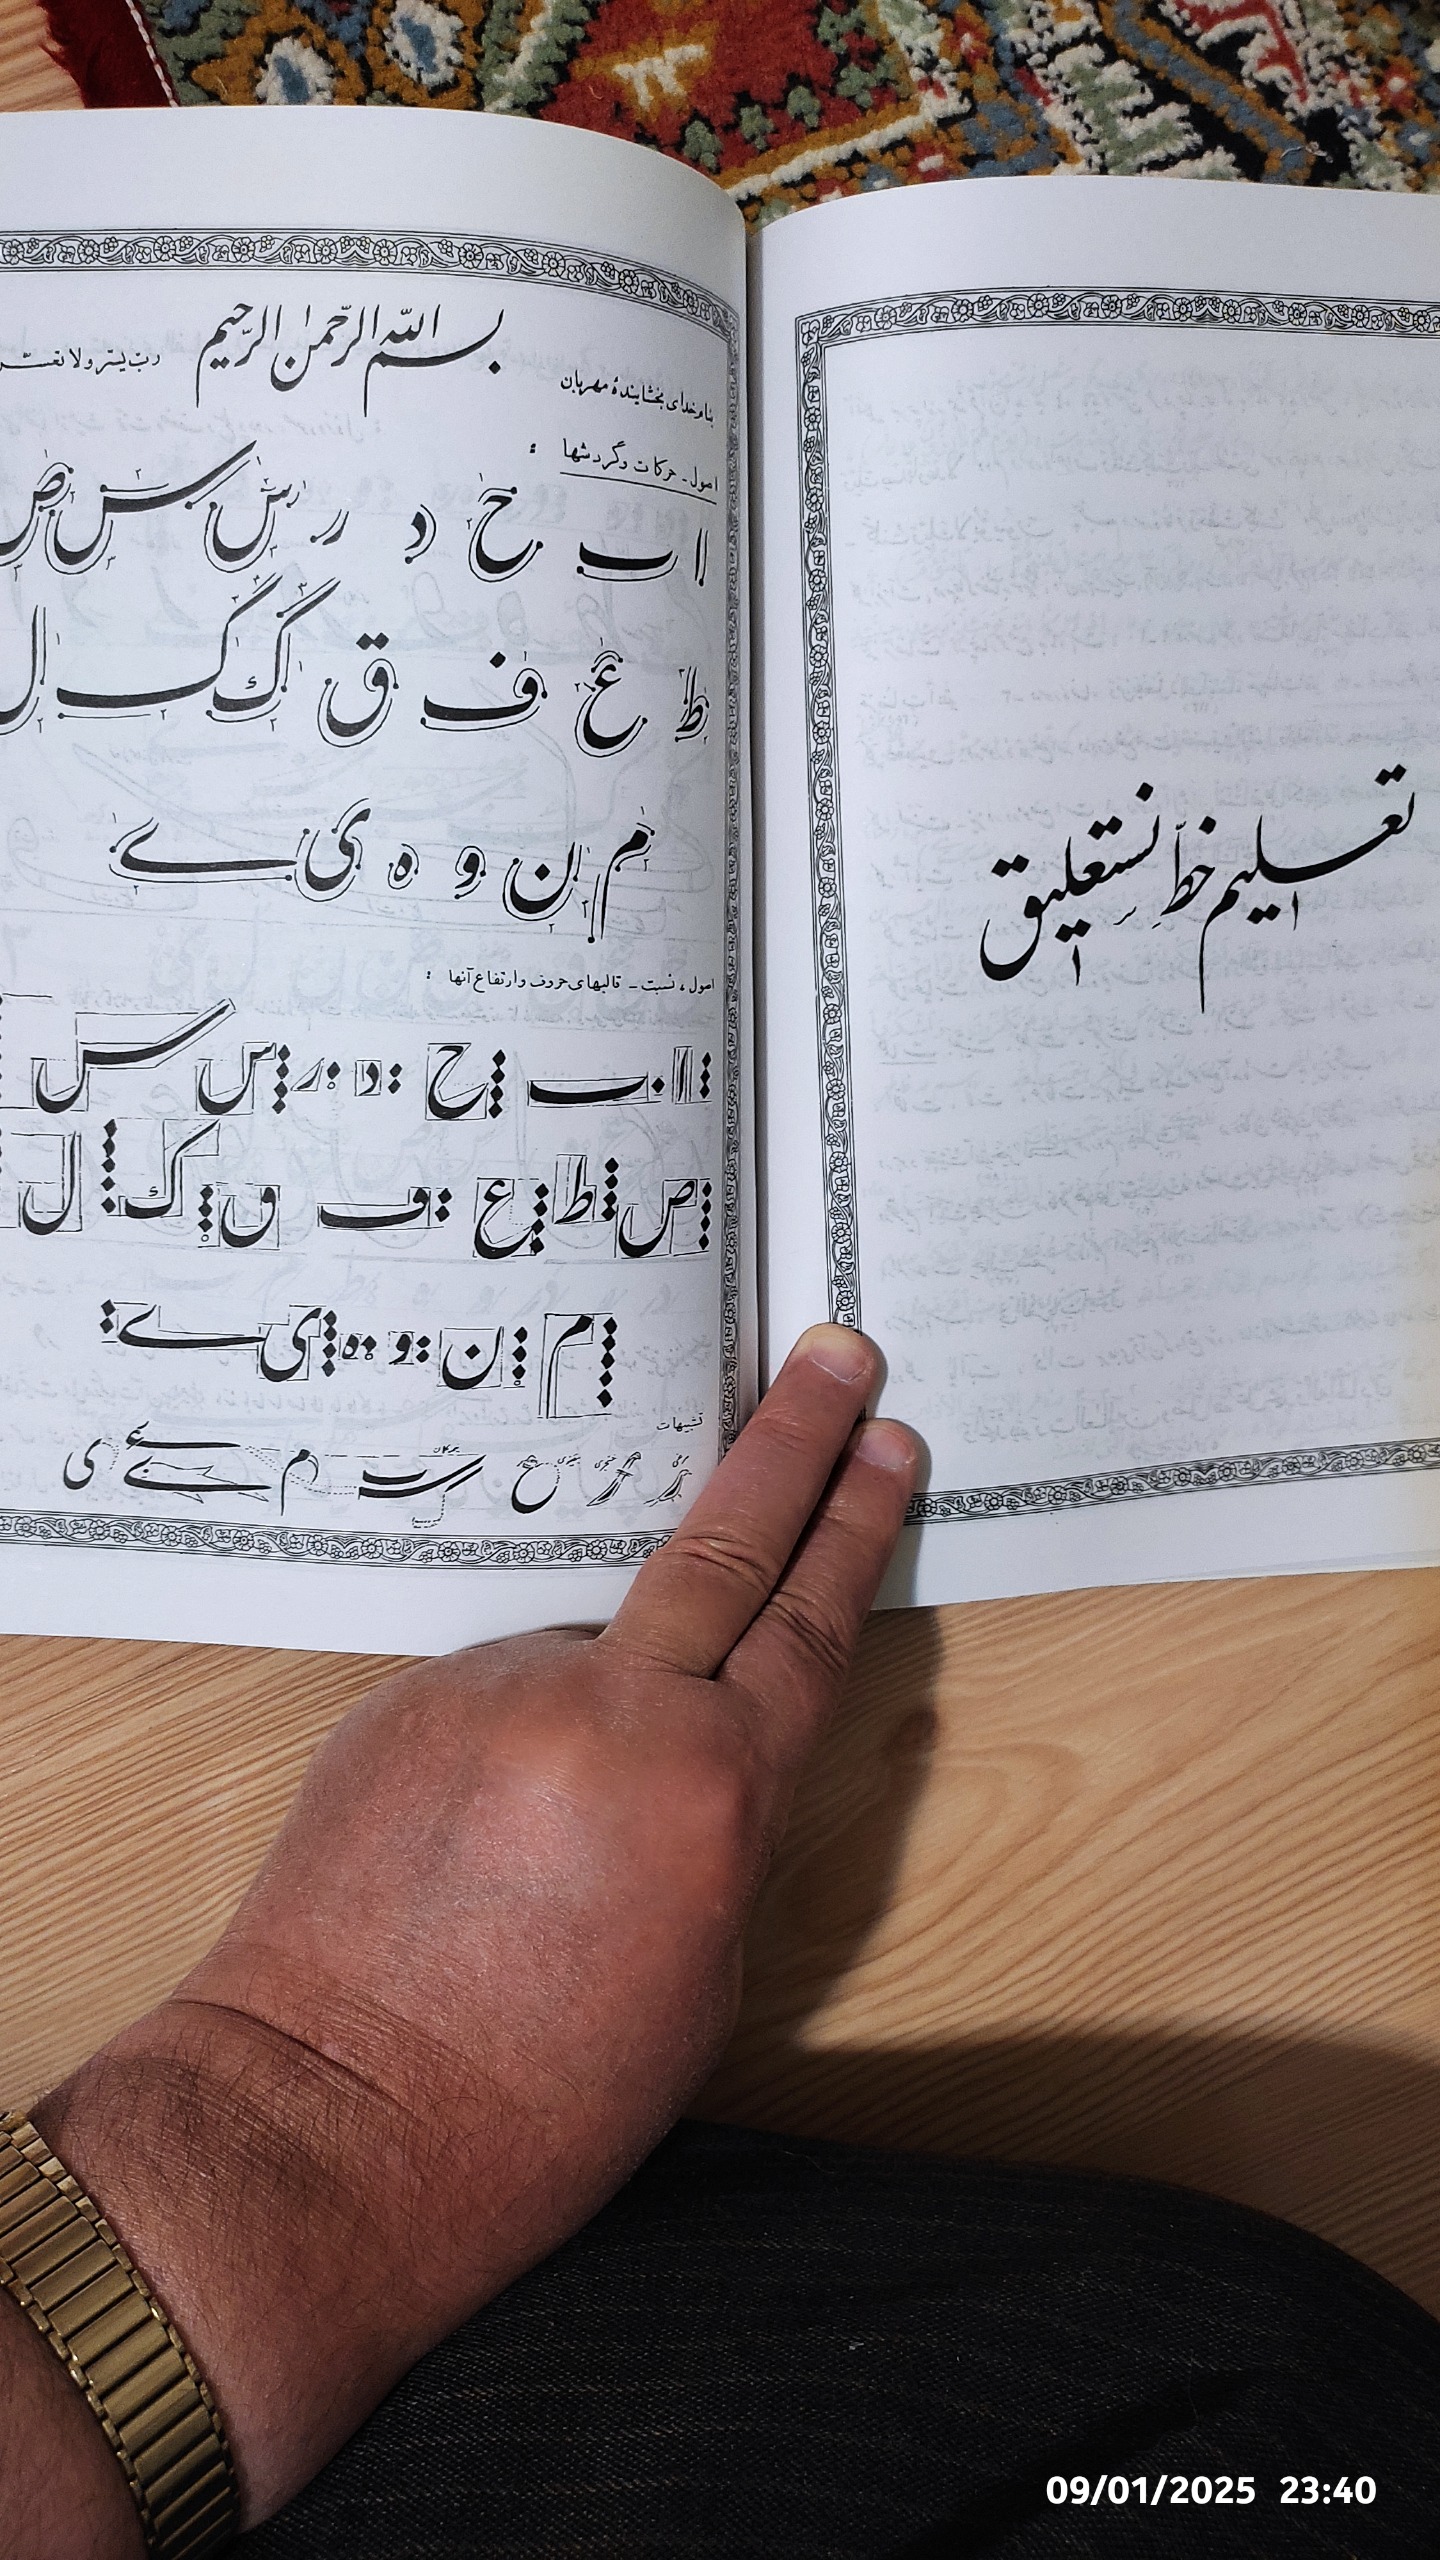 تعلیم خطّ نستعلیق
بسم الله الرّحمن الرّحیم
ربّ یسّر ولا تعسّر
بنام خدای بخشایندهٔ مهربان
اصول ـ حرکات و گردشها :
ا ب ح د ر ر س س ص
ط ع ف ق ک ک ل
م ن و ه ی ے
اصول ، نسبت ـ قالبهای حروف و ارتفاع آنها :
ا ب ح د ر س س
ص ط ع ف ق ک ل
م ن و ه ی ے
تشبیهات
09/01/2025 23:40